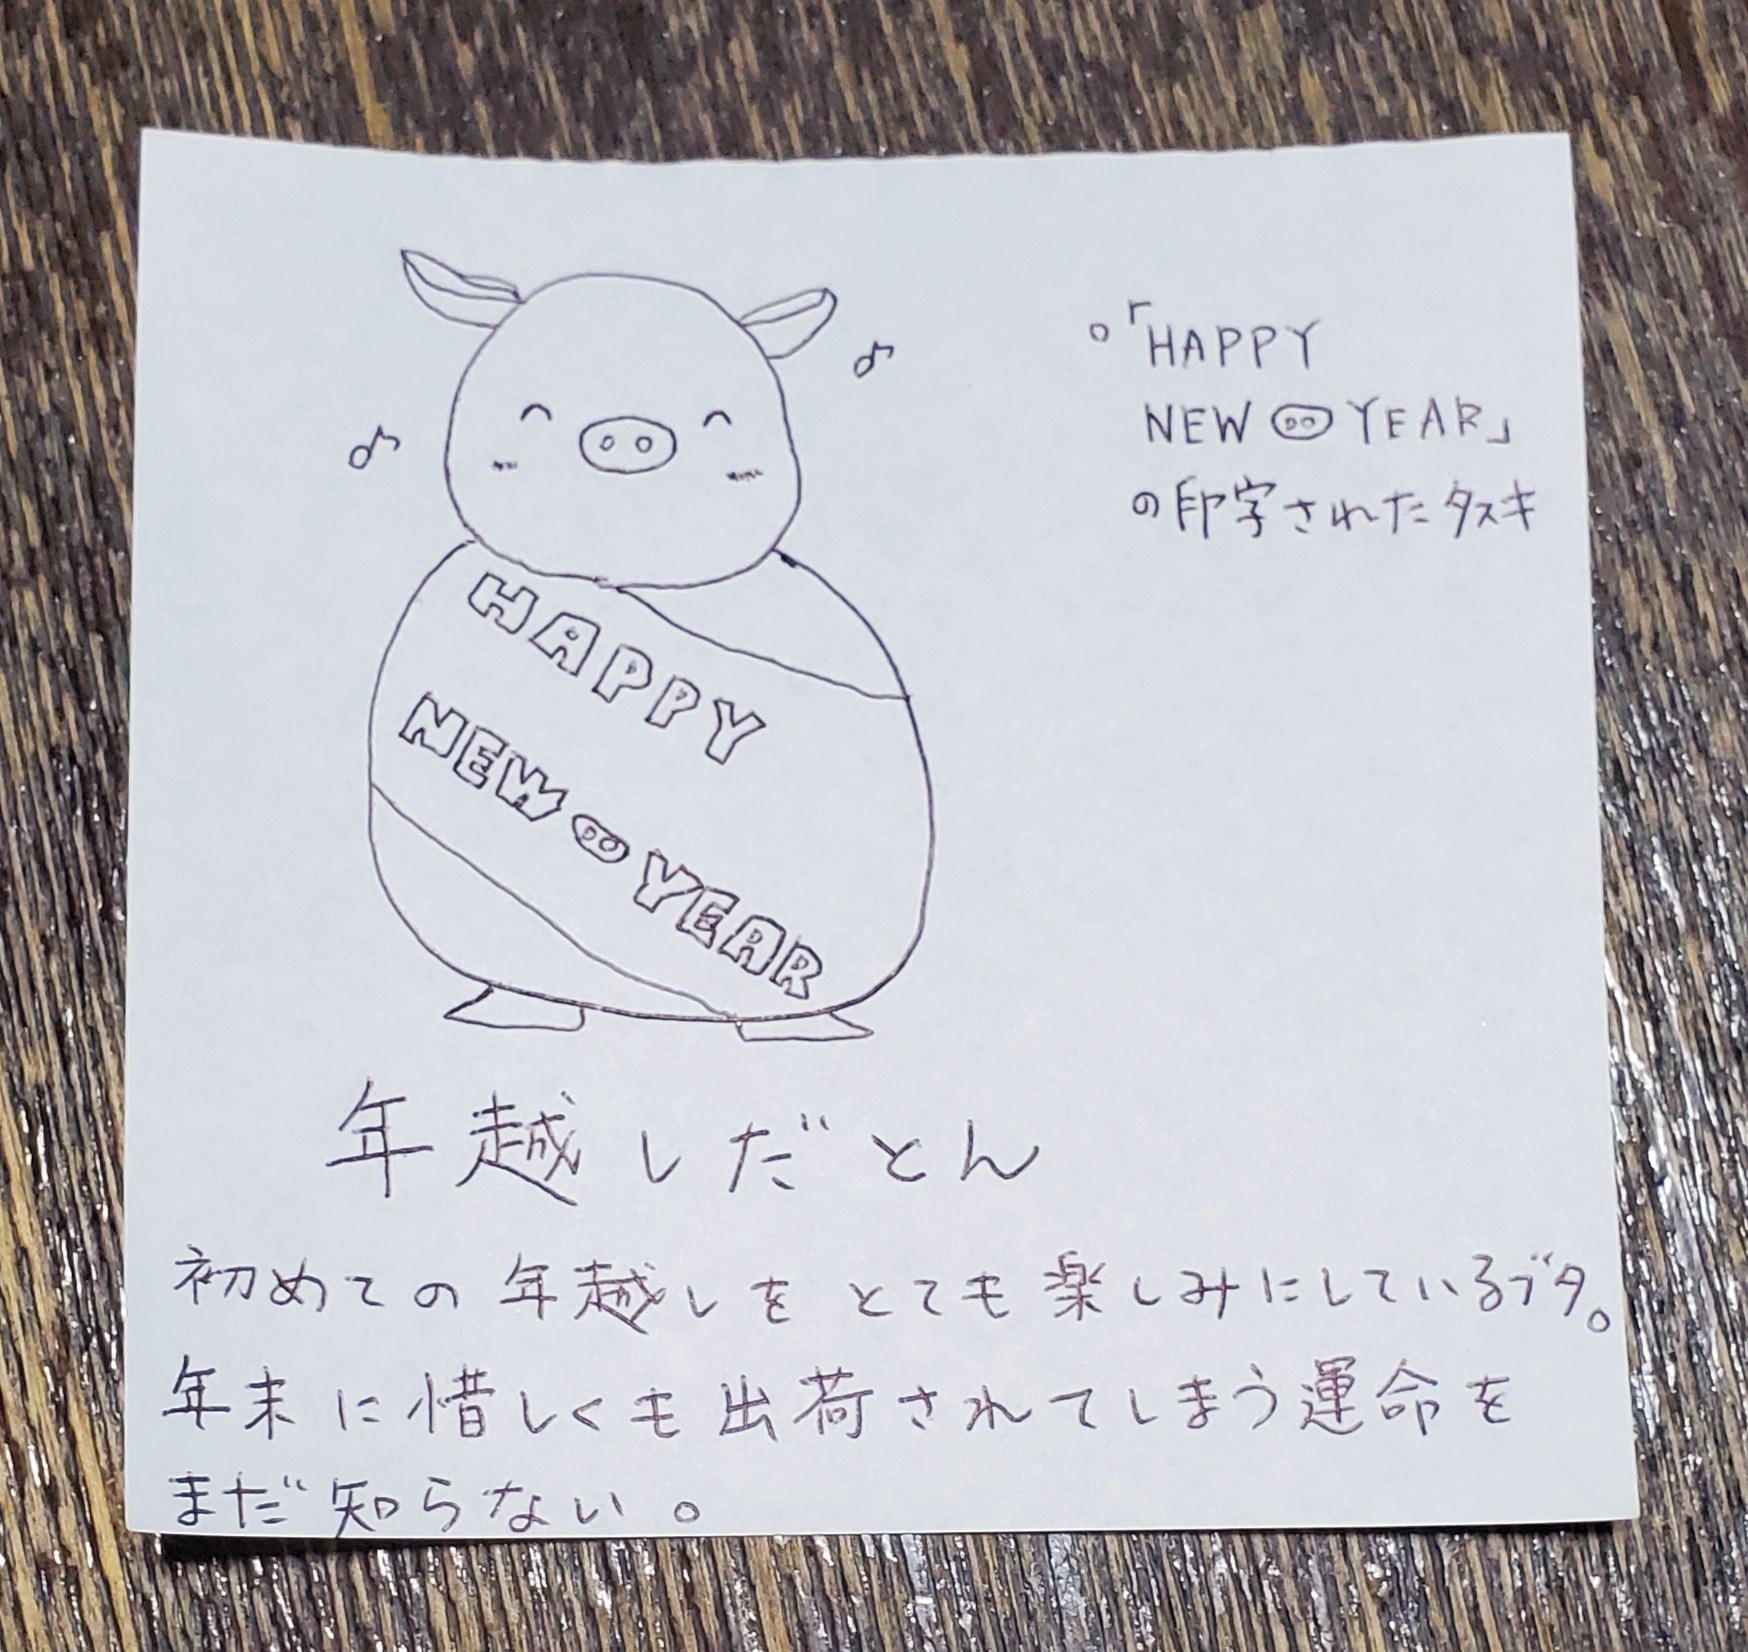 HAPPY
NEW YEAR
。「HAPPY
NEW YEAR」
の印字されたタスキ
年越しだとん
初めての年越しをとても楽しみにしているブタ。
年末に惜しくも出荷されてしまう運命を
まだ知らない。